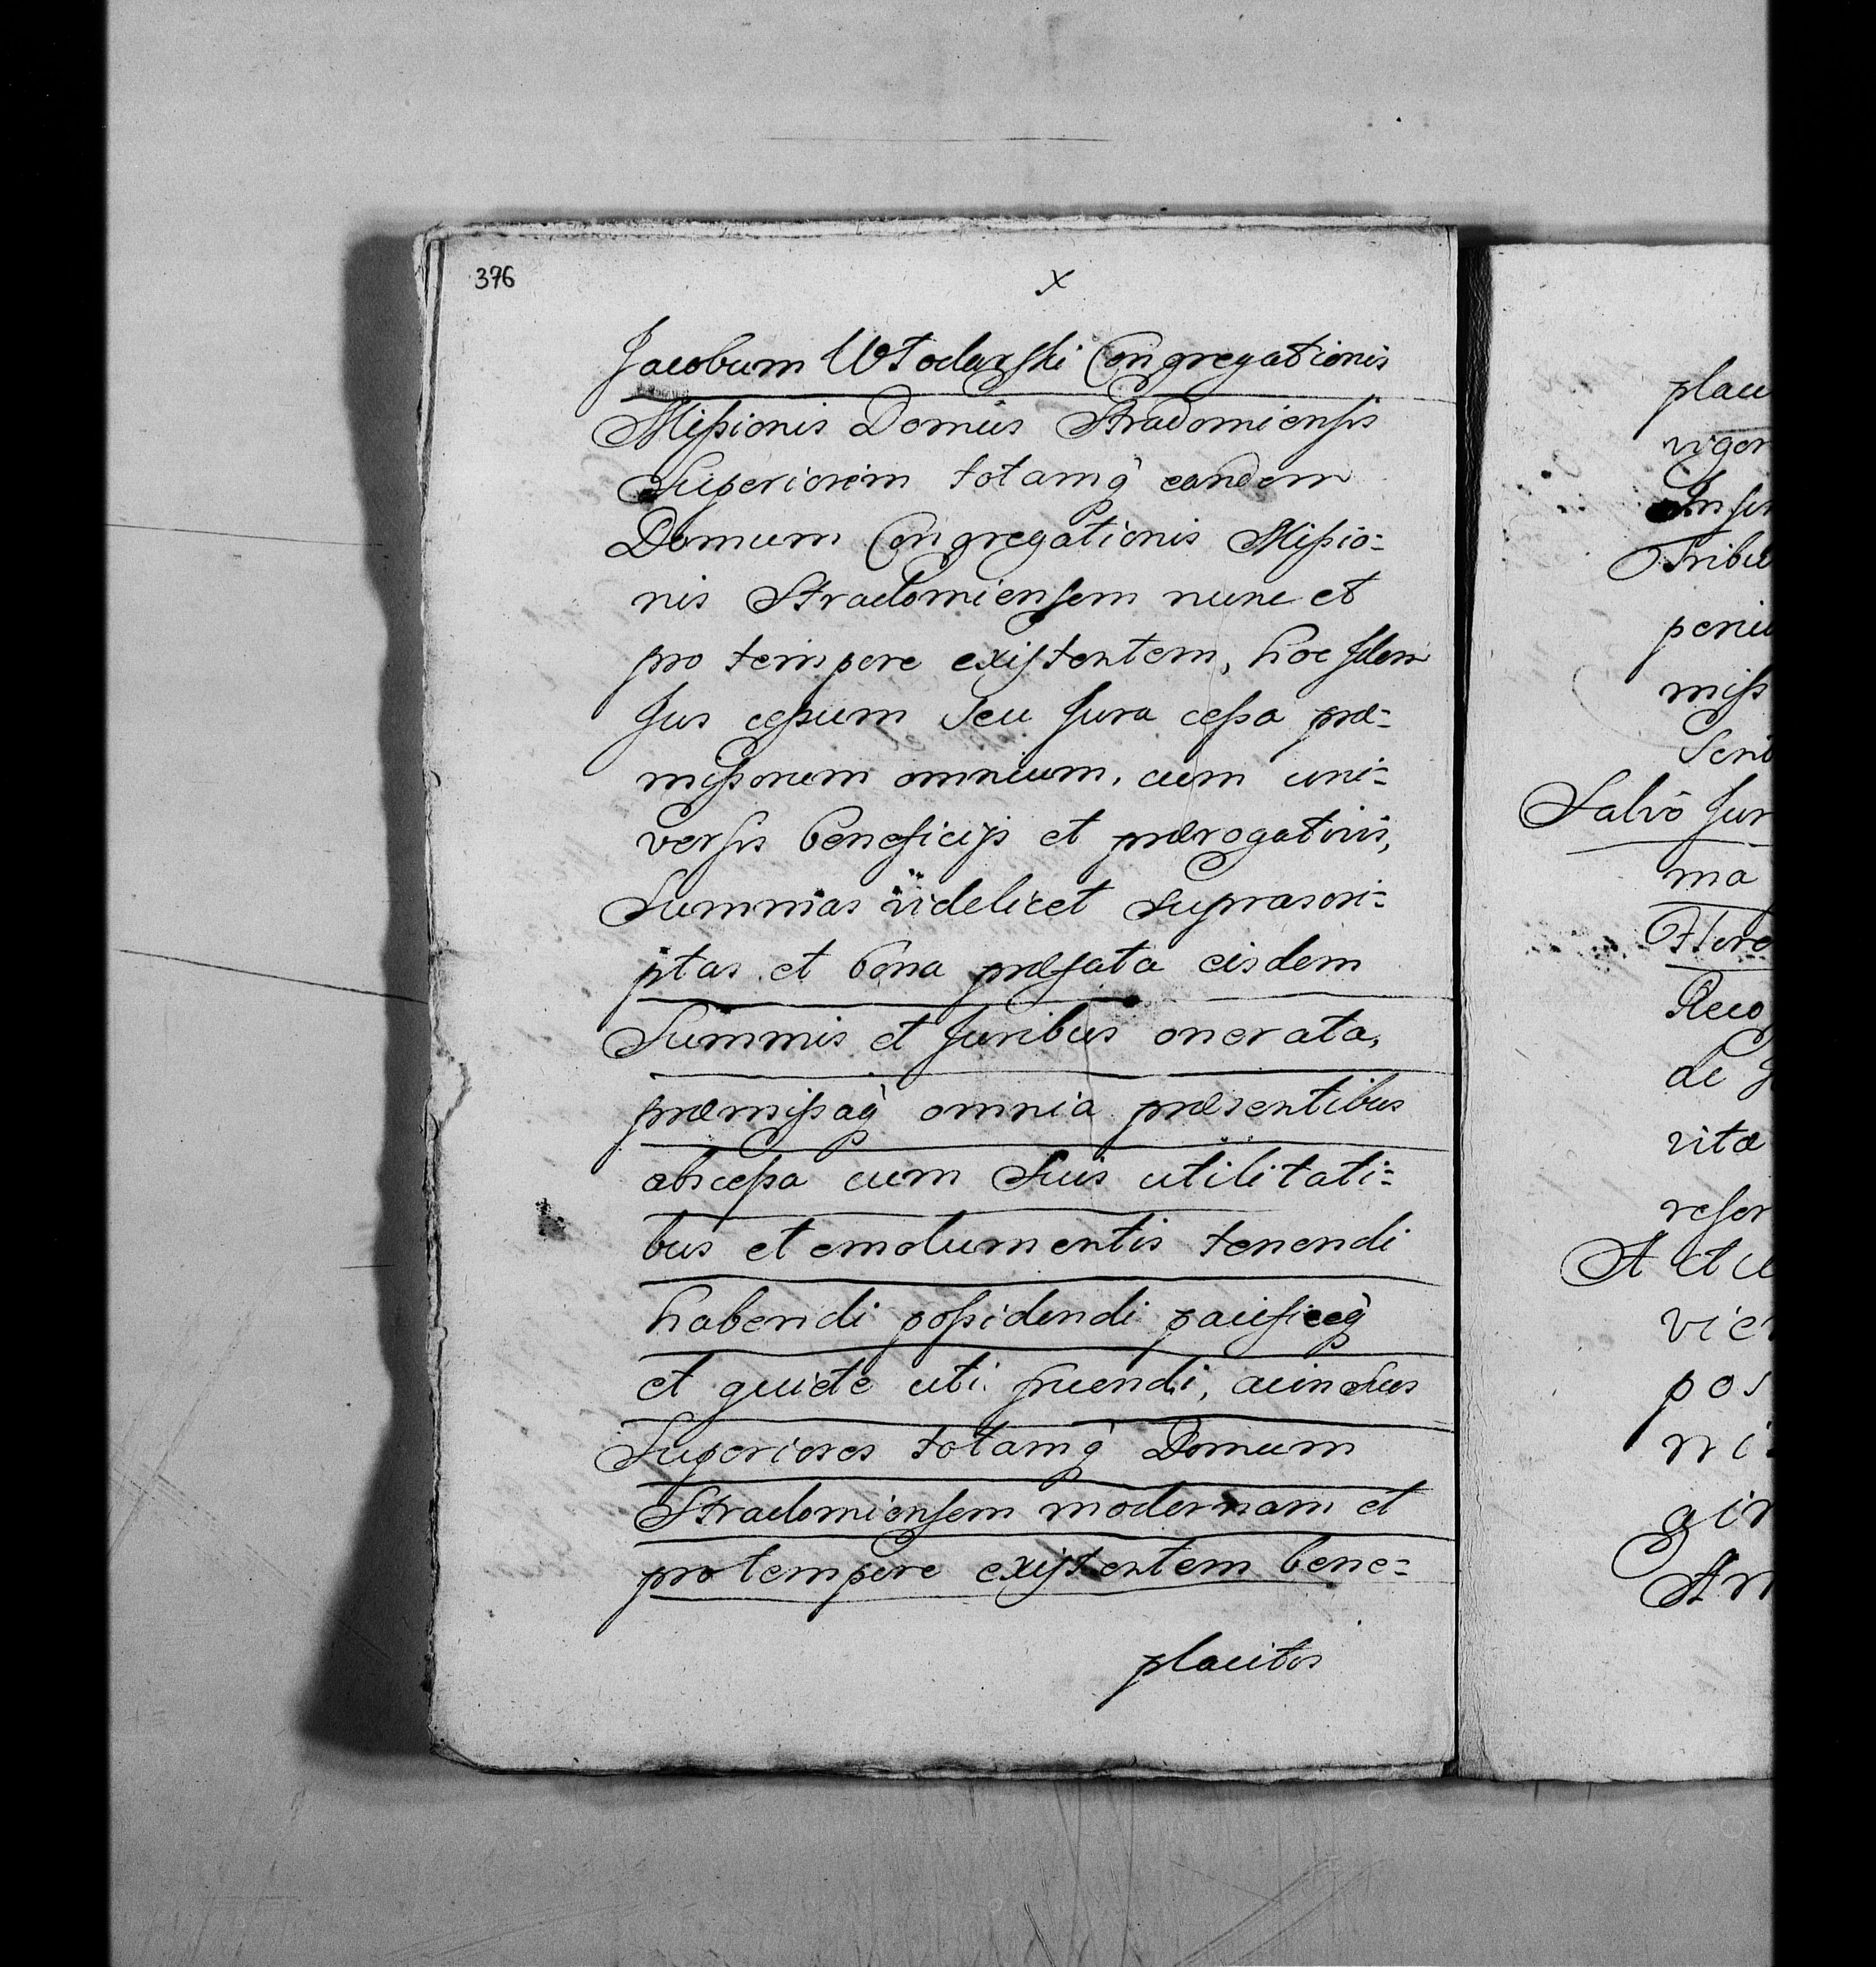 376
x
Jacobum Włodarski Congregationis
Missionis Domûs Stradomiensis
Superiorem totamq̀ eandem
Domum Congregationis Missio=
nis Stradomiensem nunc et
pro tempore existentem, hoc Idem
Jus cessum Seu Jura cessa præ=
missorum omnium, cum uni=
versis beneficijs et prærogativis,
Summas videlicet suprascri=
ptas et bona præfata eisdem
Summis et Juribus onerata,
præmissaq̀ omnia præsentibus
abscessa cum Suis utilitati=
bus et emolumentis tenendi
habendi possidendi pacificeq̀
et quiete uti fruendi, ac in Suos
Superiores totamq̀ Domum
Stradomiensem modernam et
pro tempore existentem bene=
placitos
plac
viger
Inser
Tribu
miss
Salvô Jur
ma
Reco
de
vitæ
reser
vic
pos
ni